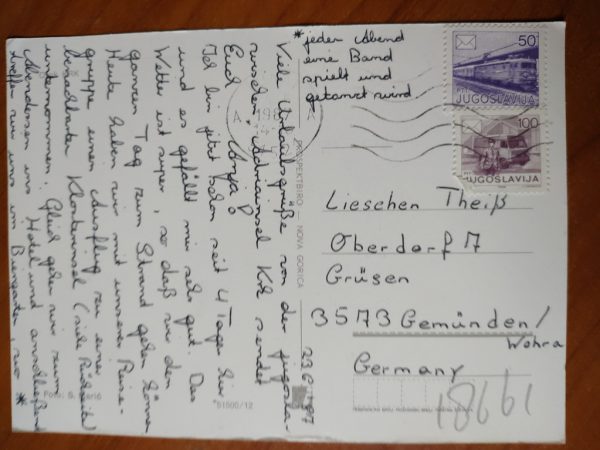 Viele Urlaubsgrüße von der jugosla-
wischen Adriainsel Krk sendet
Euch Anja!
Ich bin jetzt schon seit 4 Tagen hier
und es gefällt mir sehr gut. Das
Wetter ist super, so daß wir den
ganzen Tag zum Strand gehen können.
Heute haben wir mit unserer Reise-
gruppe einen Ausflug zu einer
benachbarten Klosterinsel (siehe Rückseite)
unternommen. Gleich gehen wir zum
Abendessen ins Hotel und anschließend
treffen wir uns im Biergarten, wo *
* jeden Abend
eine Band
spielt und
getanzt wird
50
JUGOSLAVIJA
100
JUGOSLAVIJA
Lieschen Theiß
Oberdorf 7
Grüsen
3573 Gemünden/
Wohra
Germany
18661
PROSPEKTBIRO — NOVA GORICA
51500/12
Foto: